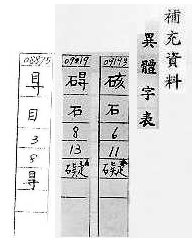 補充資料
異體字表
09193
硋
石
6
11
礙
09819
碍
石
8
13
礙
08875
㝵
目
3
8
㝵